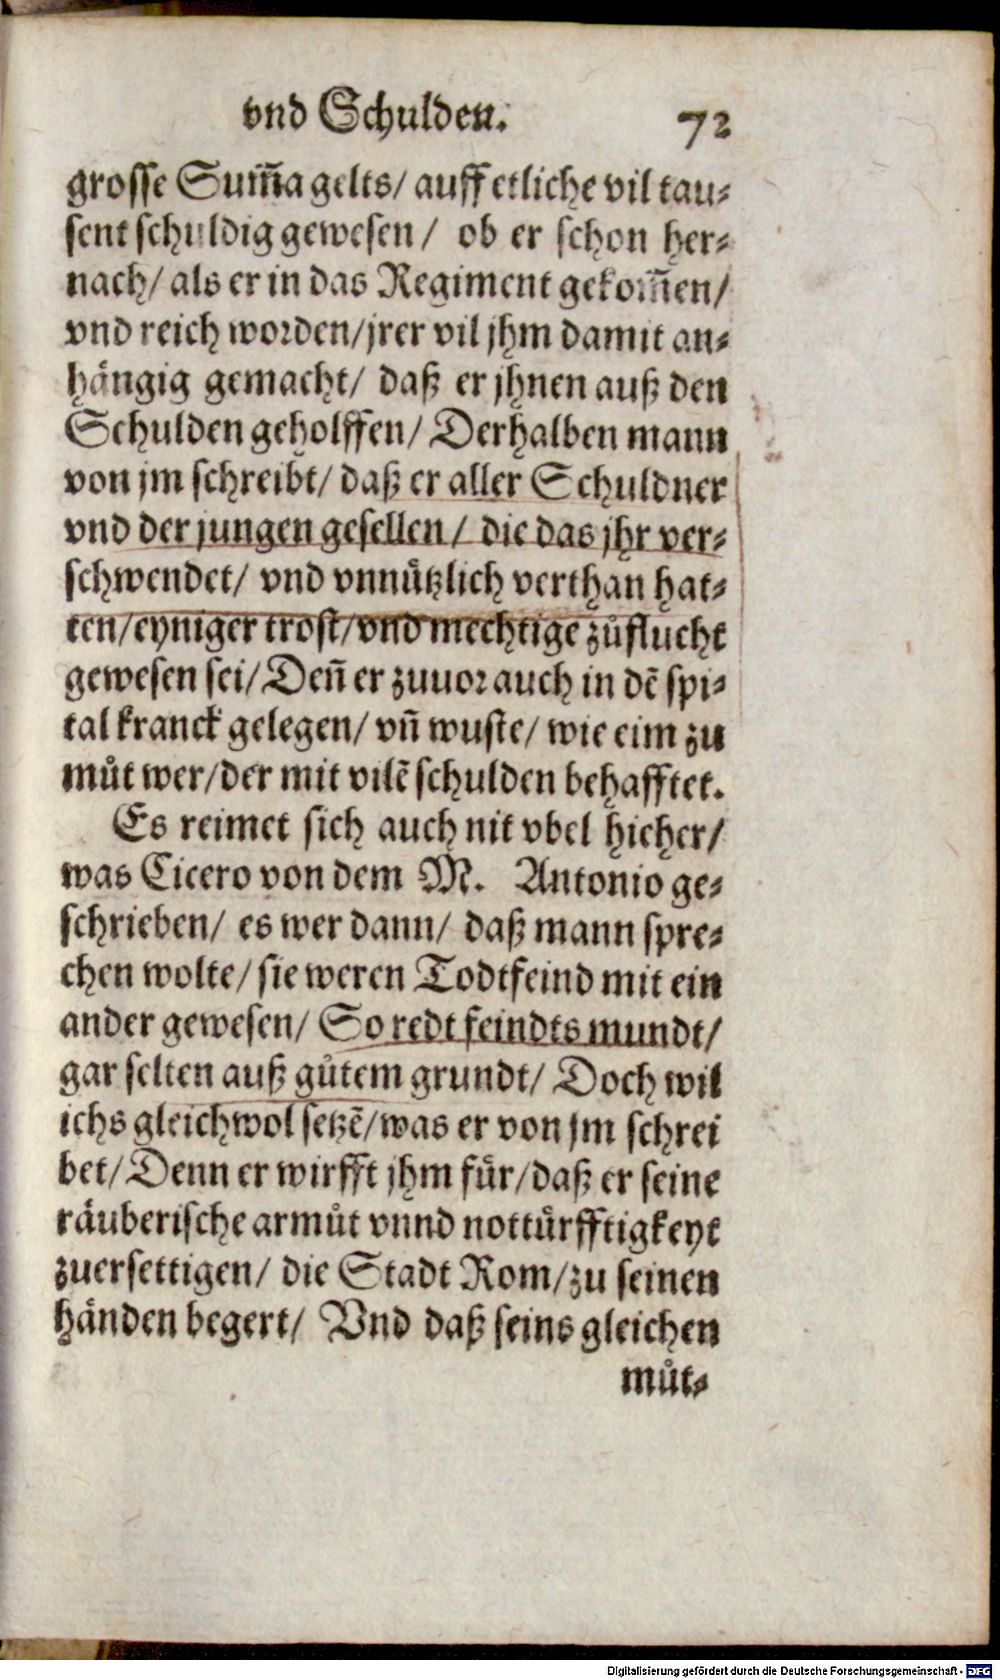 vnd Schulden. 72
grosse Sum̃a gelts/ auff etliche vil tau⸗
sent schuldig gewesen/ ob er schon her⸗
nach/ als er in das Regiment gekom̃en/
vnd reich worden/ jrer vil jhm damit an⸗
hängig gemacht/ daß er jhnen auß den
Schulden geholffen/ Derhalben mann
von jm schreibt/ daß er aller Schuldner
vnd der jungen gesellen/ die das jhr ver⸗
schwendet/ vnd vnnůtzlich verthan hat⸗
ten/ eyniger trost/ vnd mechtige zůflucht
gewesen sei/ Deñ er zuuor auch in dẽ spi⸗
tal kranck gelegen/ vñ wuste/ wie eim zu
můt wer/ der mit vilẽ schulden behafftet.
Es reimet sich auch nit vbel hieher/
was Cicero von dem M. Antonio ge⸗
schrieben/ es wer dann/ daß mann spre⸗
chen wolte/ sie weren Todtfeind mit ein
ander gewesen/ So redt feindts mundt/
gar selten auß gůtem grundt/ Doch wil
ichs gleichwol setzẽ/ was er von jm schrei
bet/ Denn er wirfft jhm für/ daß er seine
räuberische armůt vnnd nottürfftigkeyt
zuersettigen/ die Stadt Rom/ zu seinen
händen begert/ Vnd daß seins gleichen
můt⸗
Digitalisierung gefördert durch die Deutsche Forschungsgemeinschaft - DFG